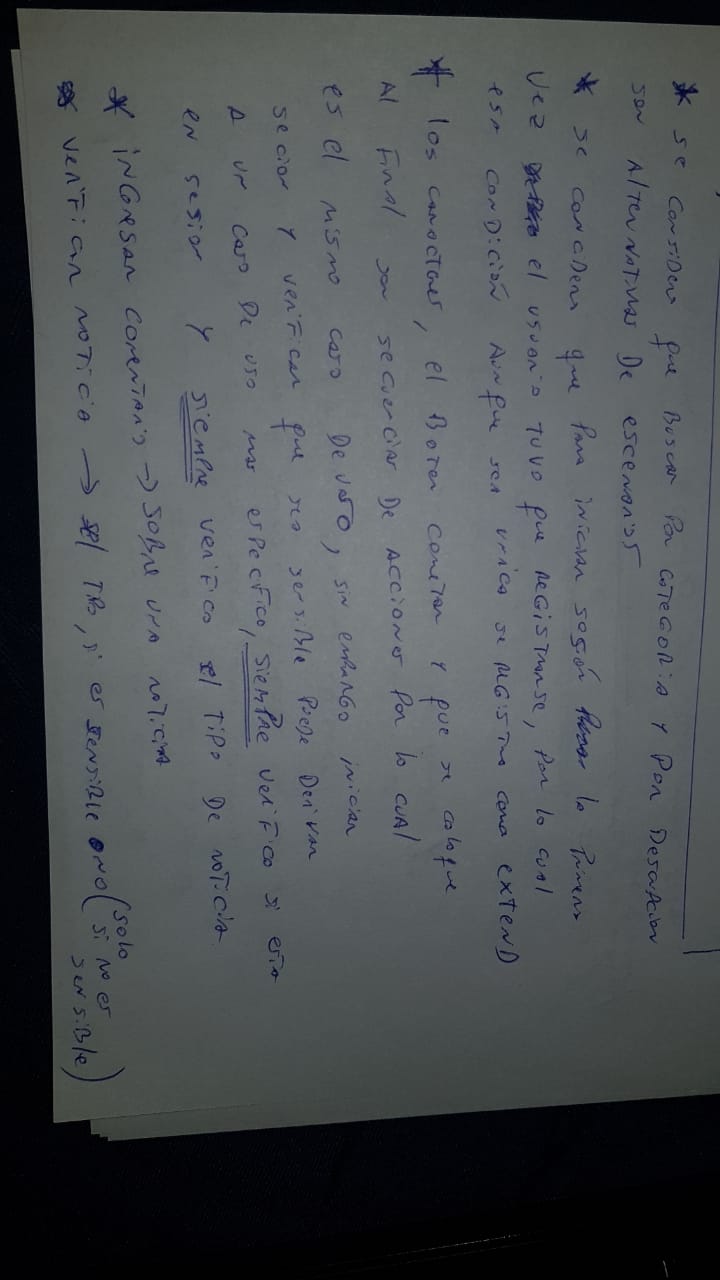 * Se considera que Buscar Por categoria y Por Descripcion
son Alternativas De escenarios
* se considera que Para iniciar sesión la Primera
Vez el usuario tuvo que registrarse, Por lo cual
esa condición Aunque sea unica se registra como extend
* los caracteres, el Boton comentar y que se coloque
Al Final son secuencias De Acciones Por lo cual
es el mismo caso De uso, sin embargo iniciar
secion y verificar que sea sensible Puede Derivar
A un caso De uso mas especifico, siempre verifico si esta
en sesion y siempre verifico el Tipo De noticia.
* ingresar comentario → Sobre una noticia
* verificar noticia → el Tipo, si es sensible o no (solo
si no es
sensible)